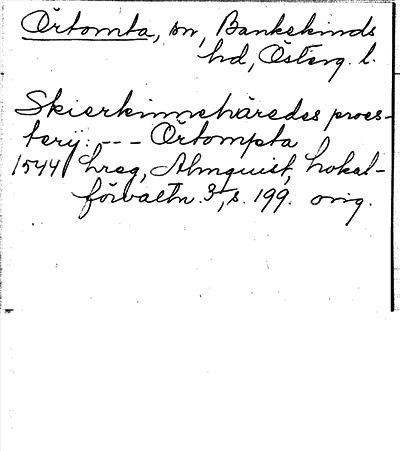 Örtomta, sn, Bankekinds
hd, Österg. l.
Skierkinneháredes proes-
terij: --- Örtompta
1544 Lreg, Almquist, Lokal-
förvaltn. 3, s. 199. orig.